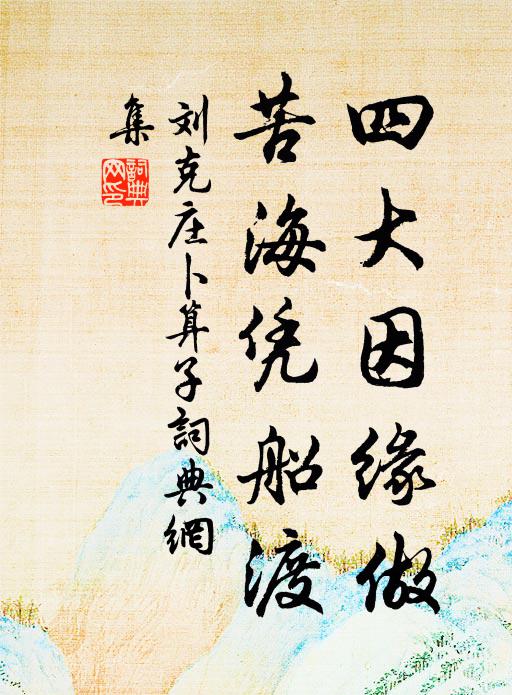 四大因缘做
苦海凭船渡
刘克庄卜算子詞典網
集
詞典網印